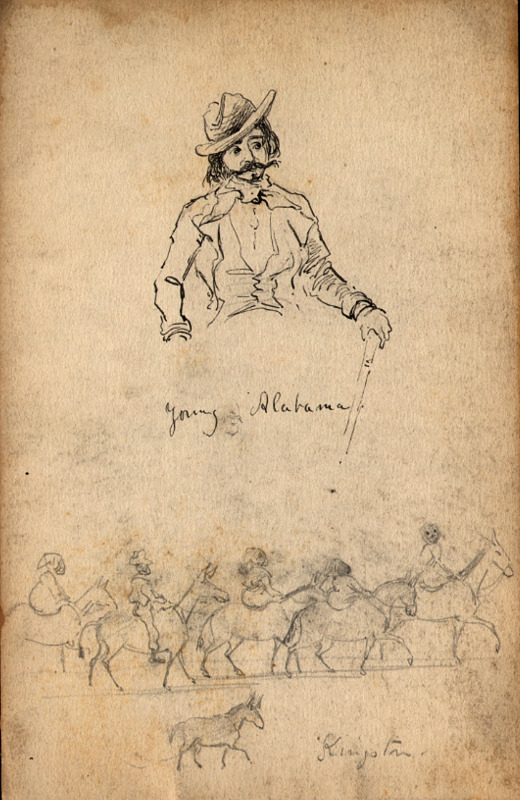 Young Alabama
Kingston.